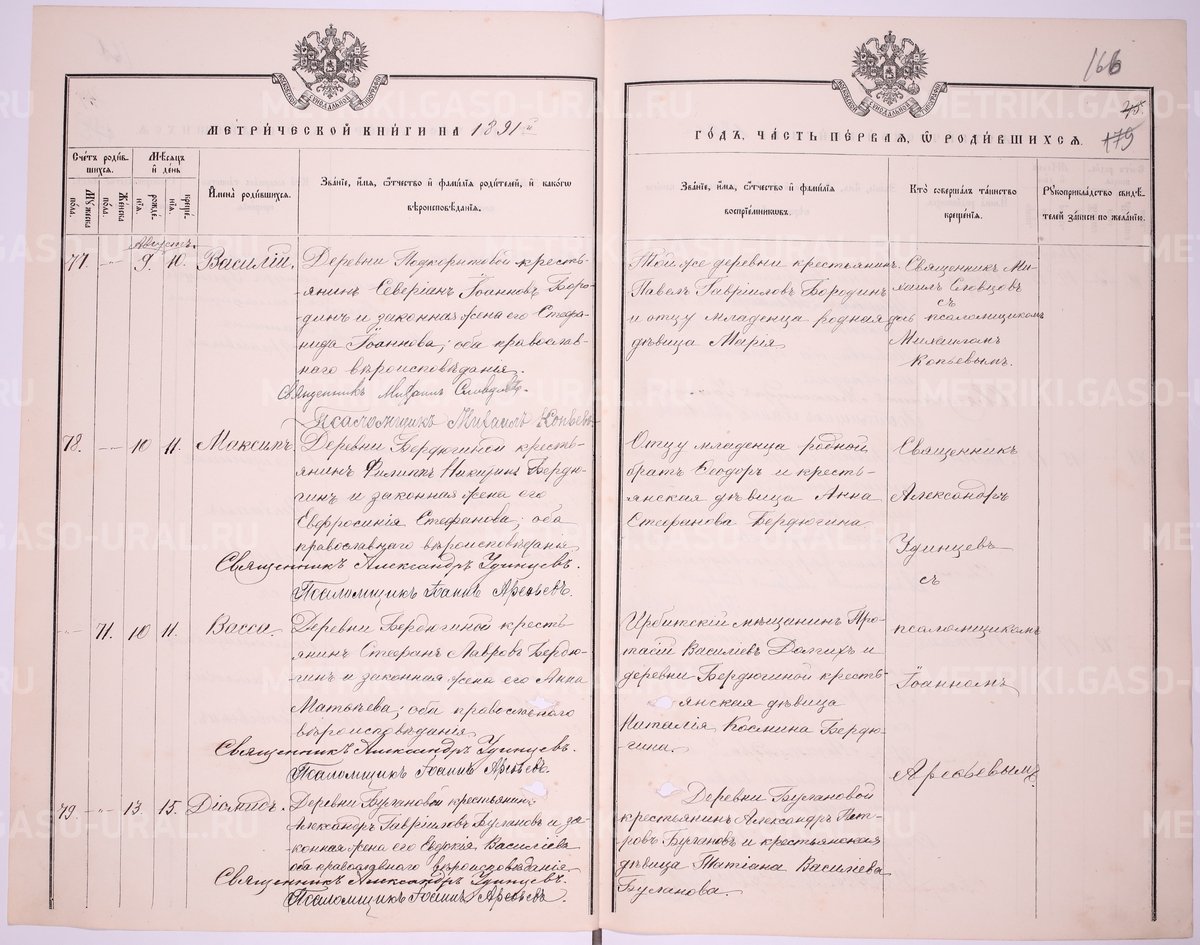 166
МЕТРИ́ЧЕСКОЙ КНИ́ГИ НА 1891й
ГО́ДЪ, ЧА́СТЬ ПЕ́РВАЯ, Ѿ РОДИ́ВШИХСЯ.
179
Сче́тъ роди́в-
шихся.
Мѣ́сяцъ
и҆ де́нь
Му́жеска
по́ла.
Же́нска
по́ла.
рожде́-
нїя.
креще́-
нїя.
И҆мена̀ роди́вшихся.
Зва́нїе, и҆́мя, ѻ҆́тчество и҆ фамѝлїя роди́телей, и҆ како́гѡ
вѣроисповѣ́данїя.
Зва́нїе, и҆́мя, ѻ҆́тчество и҆ фамѝлїя
воспрїе́мникѡвъ.
Кто̀ соверша́лъ та́инство
креще́нїя.
Рꙋкоприкла́дство свидѣ́-
телей за́писи по жела́нїю.
Августъ.
77. —„— 9. 10. Василій.
Деревни Подкорытовой кресть-
янинъ Северіанъ Іоанновъ Боро-
динъ и законная жена его Стефа-
нида Іоаннова; оба православ-
наго вѣроисповѣданія.
Священникъ Михаилъ Словцовъ.
Псаломщикъ Михаилъ Копьевъ
Той же деревни крестьянинъ
Павелъ Гавріиловъ Бородинъ
и отцу младенца родная
дѣвица Марія
Священникъ Ми-
хаилъ Словцовъ
съ
псаломщикомъ
Михаиломъ
Копьевымъ.
78. —„— 10 11. Максимъ.
Деревни Бердюгиной кресть-
янинъ Филиппъ Никитинъ Бердю-
гинъ и законная жена его
Евфросинія Стефанова; оба
православнаго вѣроисповѣданія
Священникъ Александръ Удинцевъ.
Псаломщикъ Іоаннъ Арефьевъ.
Отцу младенца родной
братъ Ѳеодоръ и кресть-
янская дѣвица Анна
Стефанова Бердюгина
Священникъ
Александръ
Удинцевъ
съ
псаломщикомъ
Іоанномъ
Арефьевымъ.
—„— 71. 10 11. Васса.
Деревни Бердюгиной кресть-
янинъ Стефанъ Лавровъ Бердю-
гинъ и законная жена его Анна
Матѳѣева; оба православнаго
вѣроисповѣданія
Священникъ Александръ Удинцевъ.
Псаломщикъ Іоаннъ Арефьевъ.
Ирбитскій мѣщанинъ Про-
тасій Василіевъ Долгихъ и
деревни Бердюгиной кресть-
янская дѣвица
Наталія Космина Бердю-
гина.
79. —„— 13. 15. Діомидъ.
Деревни Булановой крестьянинъ
Александръ Гавріиловъ Булановъ и за-
конная жена его Евдокія Василіева
оба православнаго вѣроисповѣданія
Священникъ Александръ Удинцевъ.
Псаломщикъ Іоаннъ Арефьевъ.
Деревни Булановой
крестьянинъ Александръ Пет-
ровъ Булановъ и крестьянская
дѣвица Татіана Василіева
Буланова.
METRIKI.GASO-URAL.RU